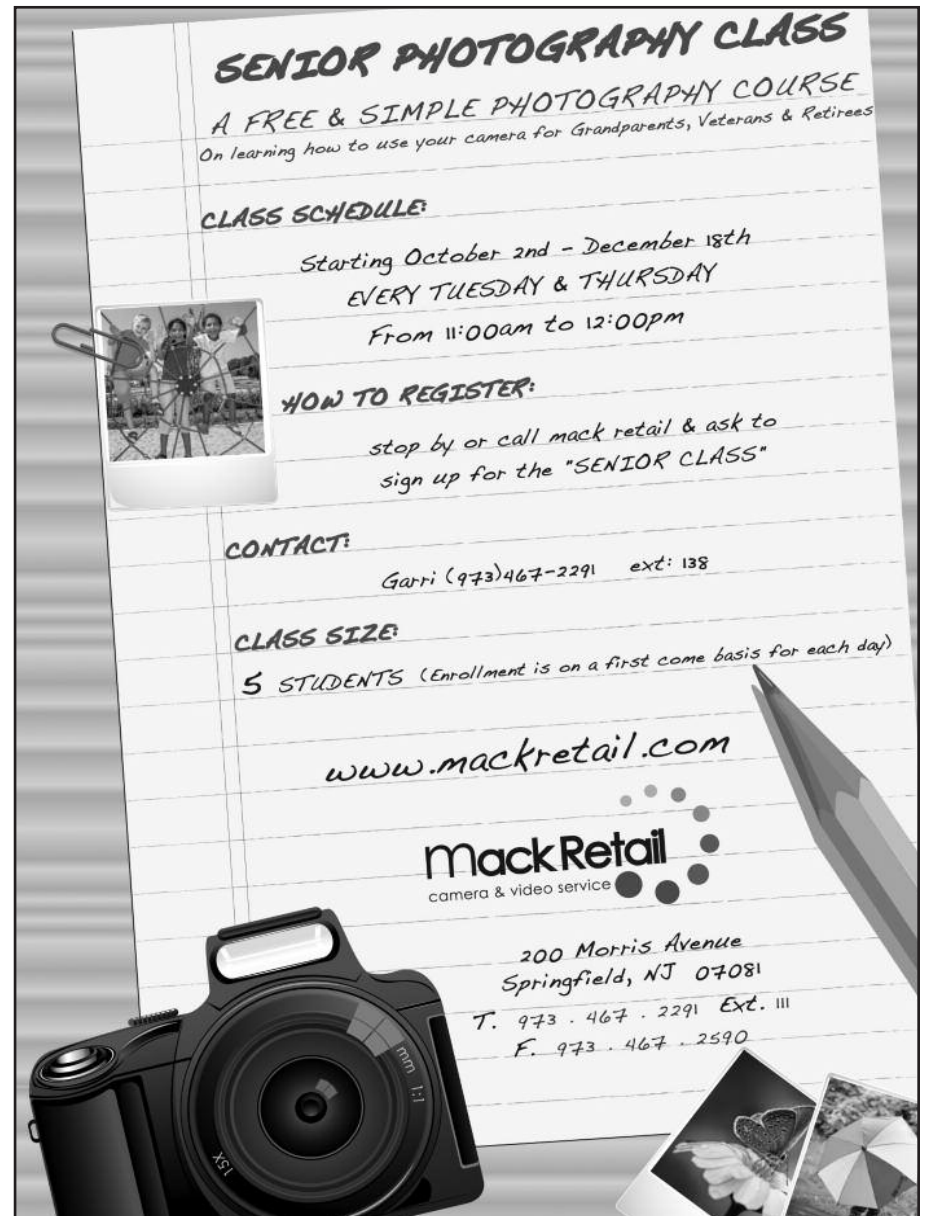 SENIOR PHOTOGRAPHY CLASS
A FREE & SIMPLE PHOTOGRAPHY COURSE
On learning how to use your camera for Grandparents, Veterans & Retirees
CLASS SCHEDULE:
Starting October 2nd - December 18th
EVERY TUESDAY & THURSDAY
From 11:00am to 12:00pm
HOW TO REGISTER:
stop by or call mack retail & ask to
sign up for the "SENIOR CLASS"
CONTACT:
Garri (973)467-2291 ext: 138
CLASS SIZE:
5 STUDENTS (Enrollment is on a first come basis for each day)
www.mackretail.com
mackRetail
camera & video service
200 Morris Avenue
Springfield, NJ 07081
T. 973 . 467 . 2291 Ext. 111
F. 973 . 467 . 2590
mm 1:1
15X